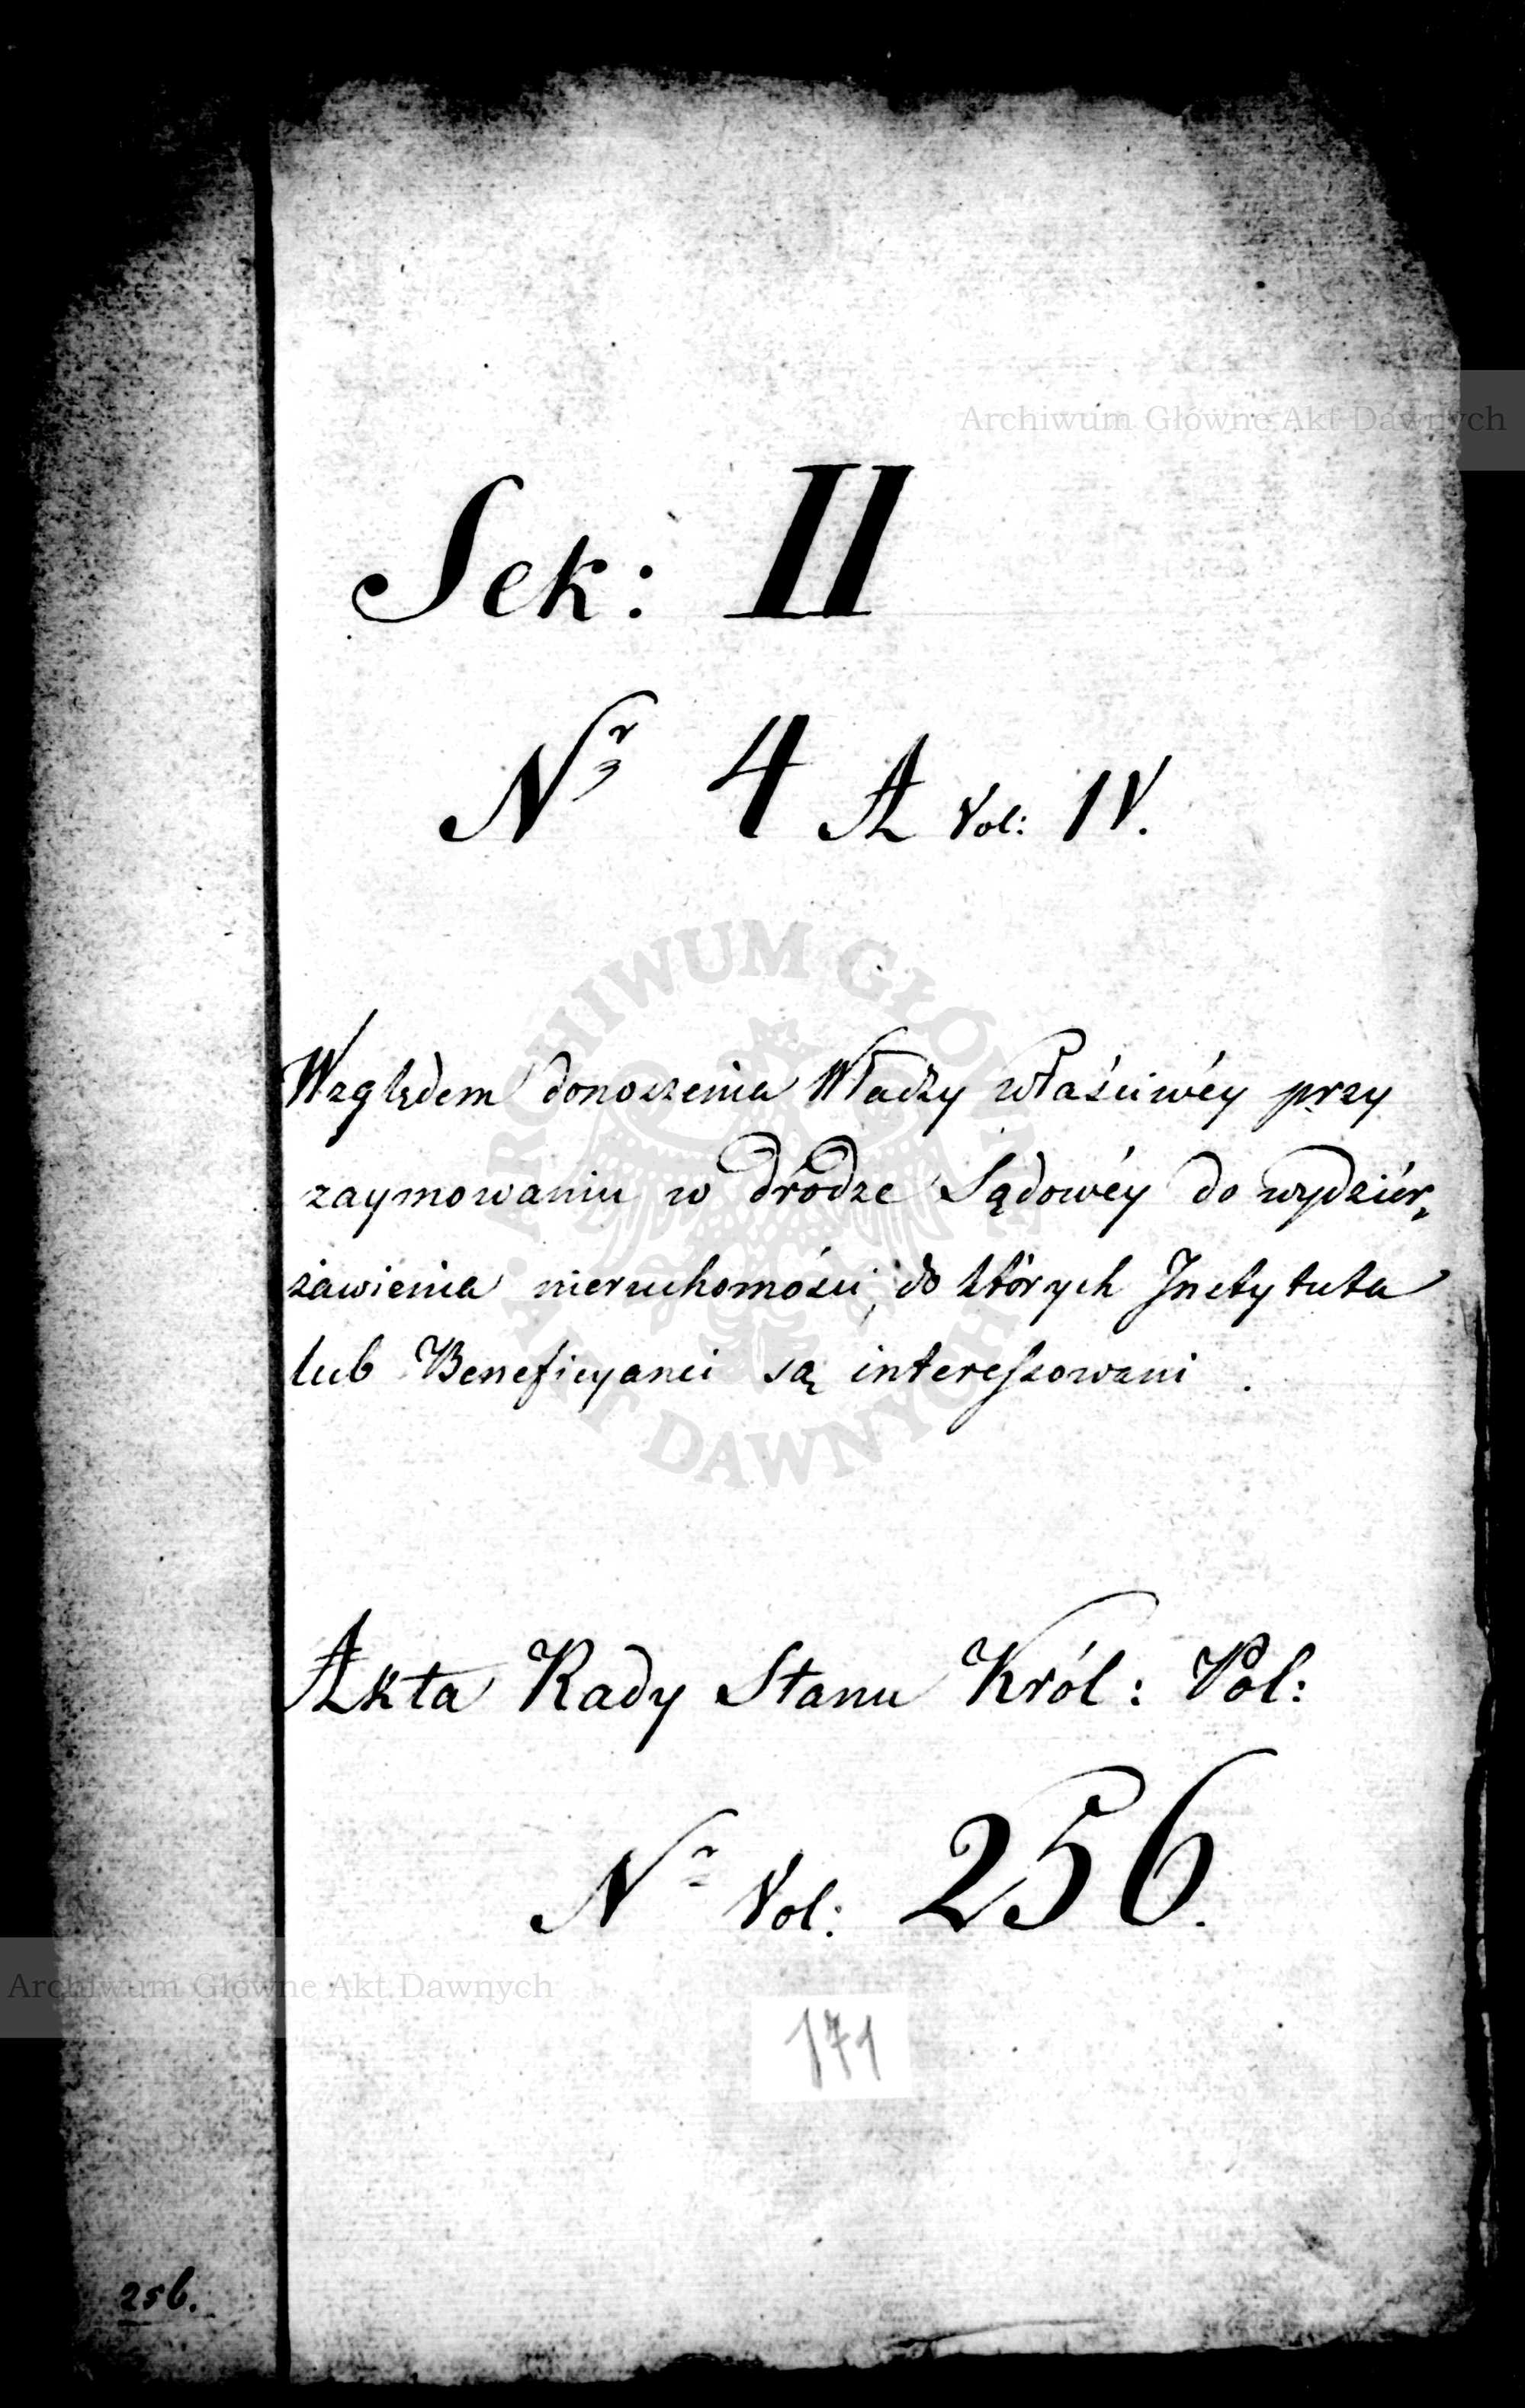 Archiwum Główne Akt Dawnych
Sek: II
Nr 4 A Vol: IV.
ARCHIWUM GŁÓWNE AKT DAWNYCH
Względem donoszenia Władzy właściwéy przy
zaymowaniu w drodze Sądowéy do wydziér„
żawienia nieruchomości, do których Instytuta
lub Beneficyanci są intereszowani .
Akta Rady Stanu Król: Pol:
Nr Vol: 256.
Archiwum Główne Akt Dawnych
171
256.